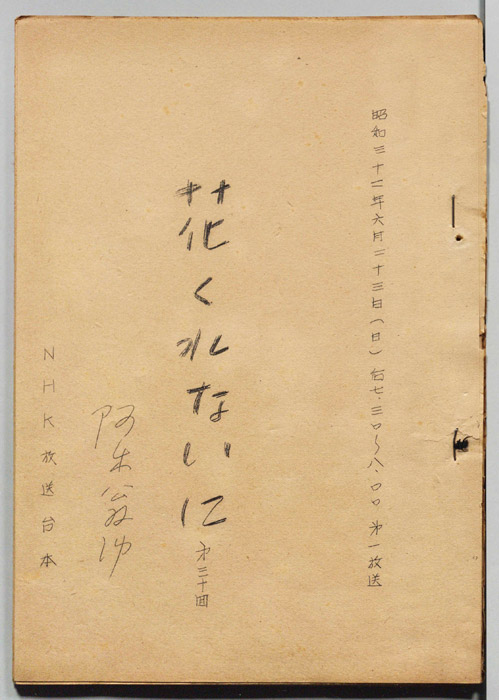 昭和三十二年六月二十三日(日)后七.三〇〜八.〇〇 第一放送
花くれないに 第三十回
阿木翁助
NHK放送台本